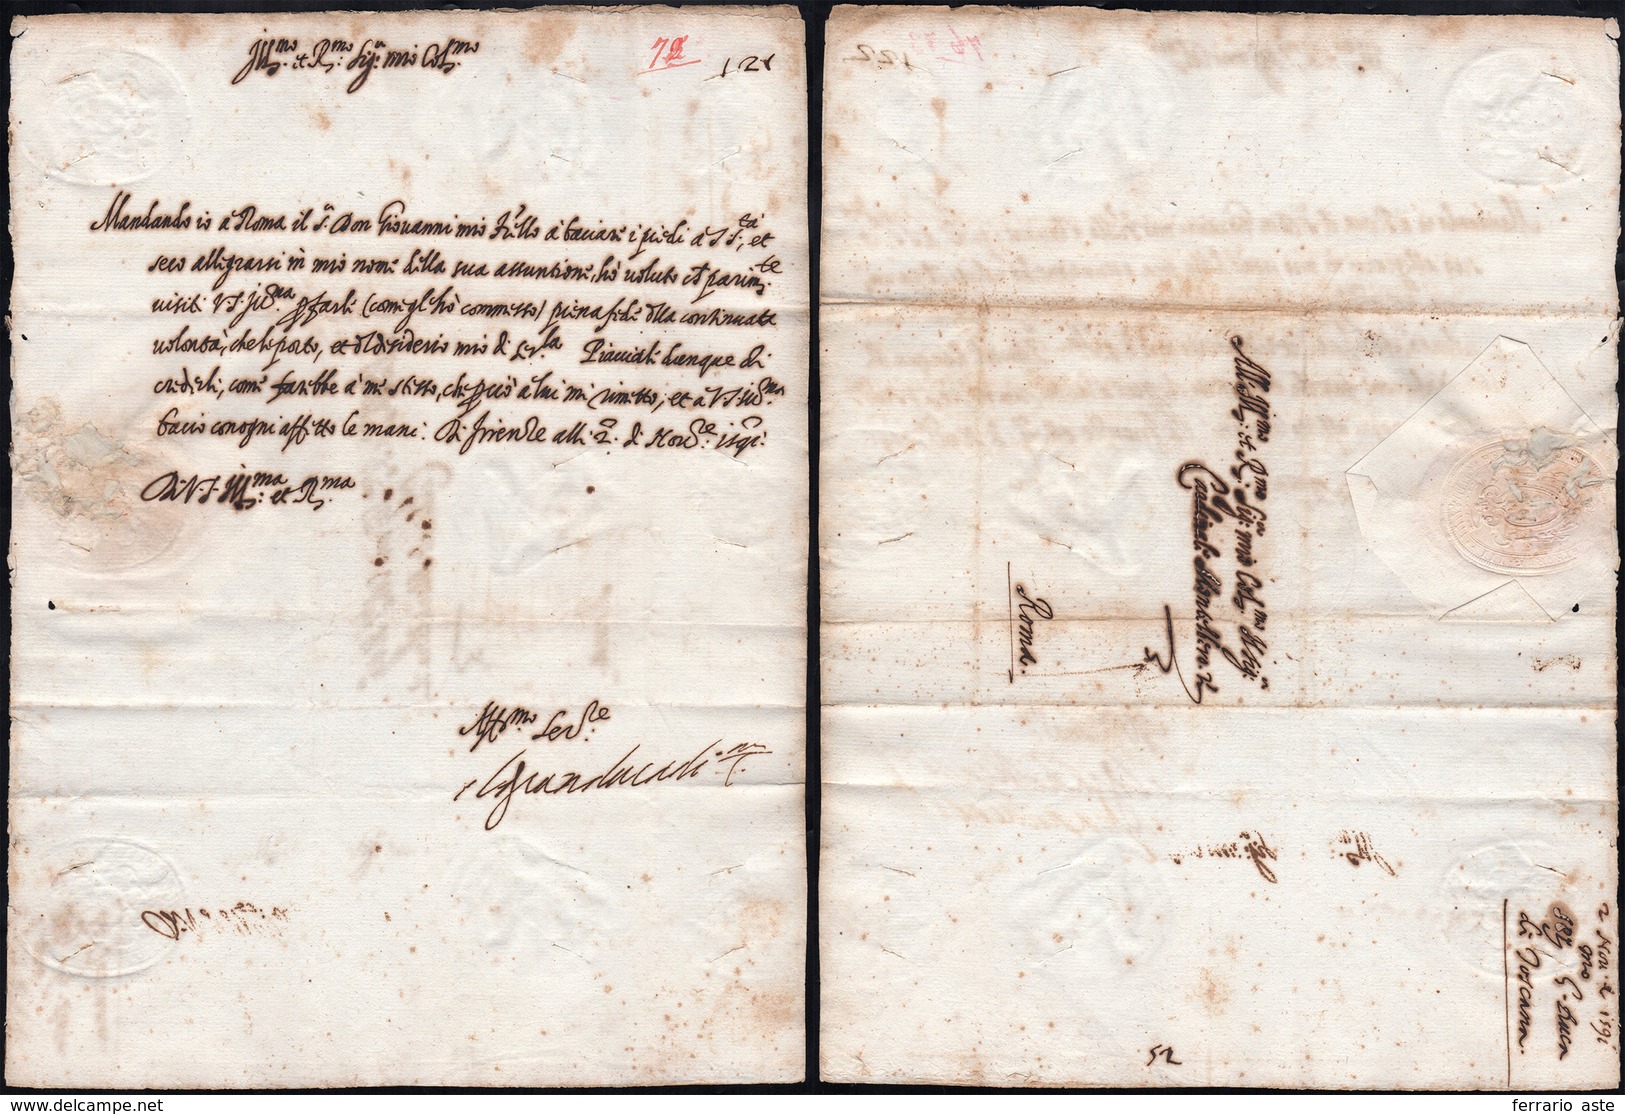 Ill.mo et R.mo Sig.r mio Col.mo
72
121
Mandando io à Roma il S.r Don Giovanni mio f.llo à baciare i piedi à S. S.tà, et
seco allegrarsi in mio nome della sua assuntione, hò voluto ch parim.te
visiti V. S. Ill.ma p farli (come gl'hò commesso) piena fede dlla continuata
volontà, che le porto, et dl desiderio mio di ser.la. Piacciale dunque di
crederli, come farebbe à me stesso, che però à lui mi rimetto; et à V. S. Ill.ma
bacio con ogni affetto le mani. Di Firenze alli 2. di Nov.e 1591.
Di V. S. Ill.ma et R.ma
Aff.mo Ser.re
il Granduca di T.
122
All Ill.mo et R.mo Sig.r mio Col.mo Il Sig.r
Cardinale
Roma.
2 Nov. 1591
G. Duca
di Toscana.
52
ferrario aste